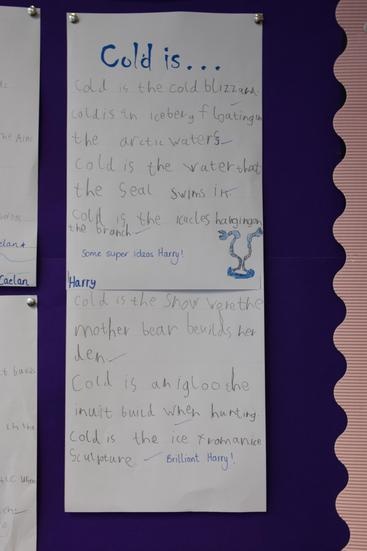 Cold is...
Cold is the cold blizzard
cold is an iceberg floating in
the arctic waters
Cold is the water that
the Seal swims in
Cold is the icicles hanging on
the branch
Some super ideas Harry!
Harry
Cold is the Snow were the
mother bear beuilds her
den
Cold is an Igloo the
inuit build when hunting.
Cold is the ice
Sculpture
Brilliant Harry!
Caelan